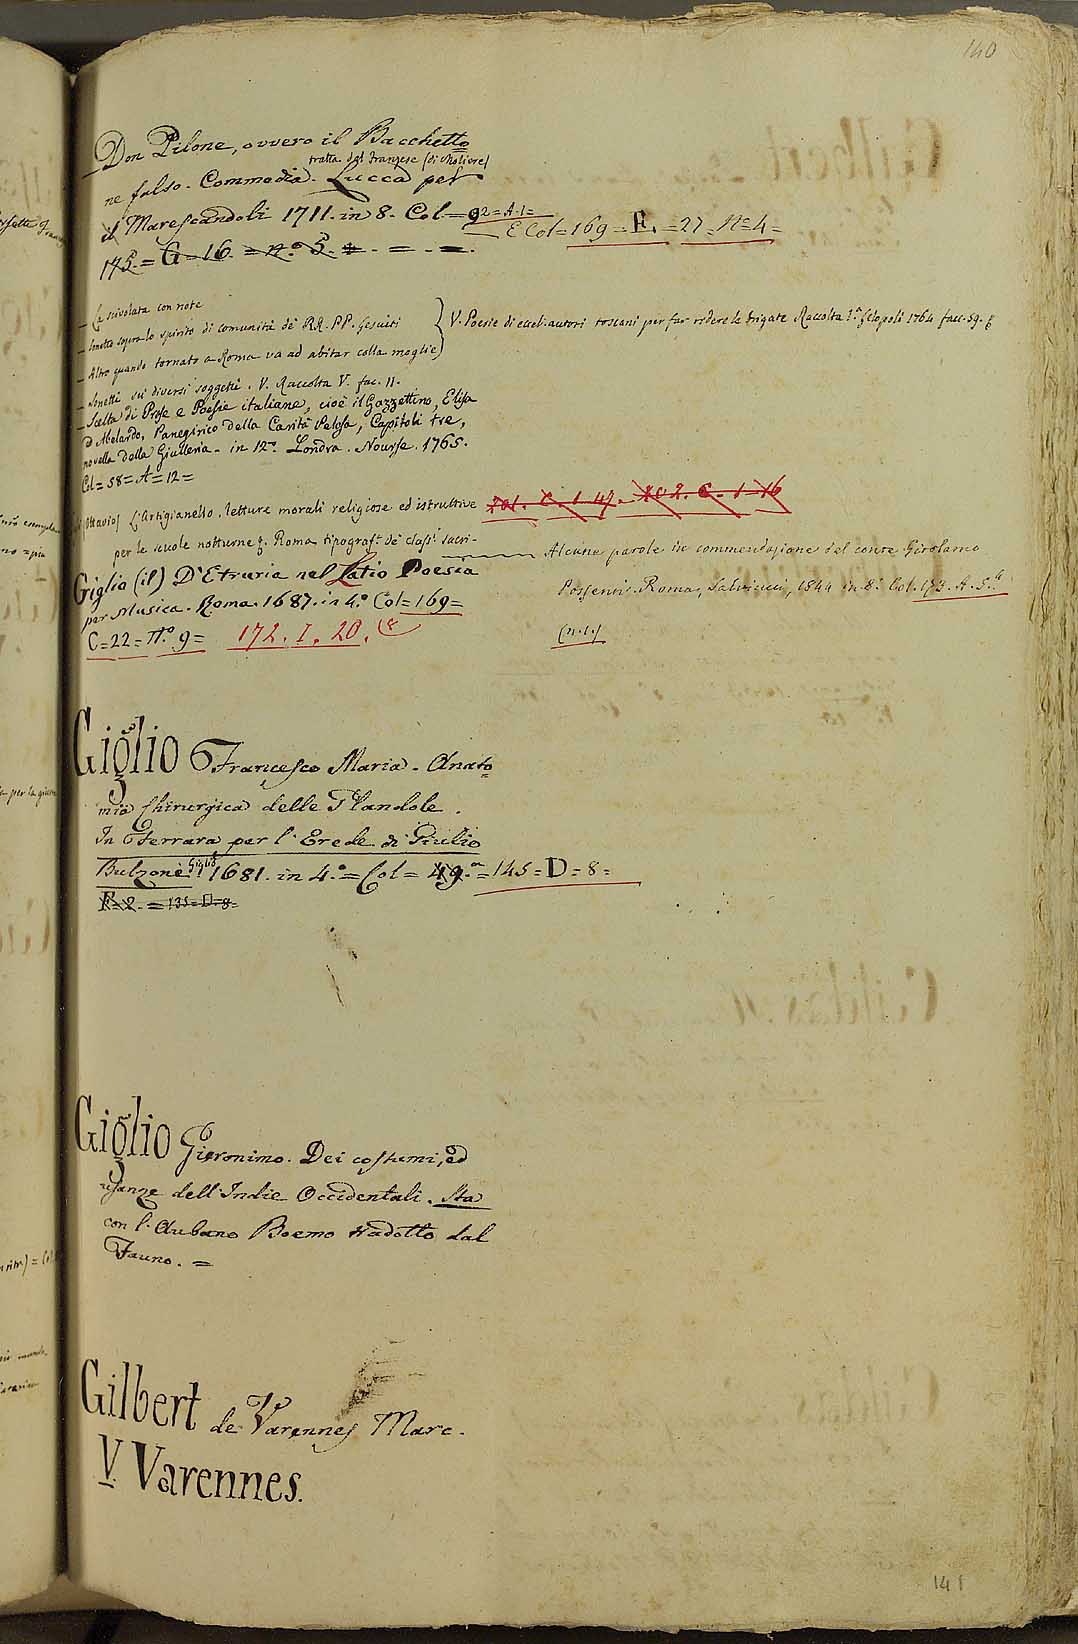 140
Don Pilone, ovvero il Bacchetto
tratta dal franzese (di Moliere)
ne falso. Commedia. Lucca per
il Marescandoli 1711. in 8. Col. = 92 = A. 1 =
E Col = 169 = F. = 27 = N.º 4 =
145. = G = 16. = n.º 5.
_ La scivolata con note
_ Sonetto sopra lo spirito di comunità de' RR. PP. Gesuiti
_ Altro quando tornato a Roma va ad abitar colla moglie
V. Poesie di eccel. autori toscani per far ridere le brigate Raccolta 1.ª Gelopoli 1764 facc. 59.
_ Sonetti sù diversi soggetti. V. Raccolta V. fac. 11.
_ Scelta di Prose e Poesie italiane, cioè il Gazzettino, Elisa
ed Abelardo, Panegirico della Carità Pelosa, Capitoli tre,
novella della Giulleria. in 12.º Londra. Nourse. 1765.
Col = 58 = A = 12 =
Ottavio) L'Artigianello. letture morali religiose ed istruttive
101. C. 1. 47. 102. C. 1 = 16
per le scuole notturne &. Roma tipograf.ª de' class.ⁱ sacri-
Alcune parole in commendazione del conte Girolamo
Possenti. Roma, Salviucci, 1844 in 8.º Col. 173. A. 5.
(n. 1.)
Giglio (il) D'Etruria nel Latio Poesia
per Musica. Roma. 1687. in 4.º Col = 169 =
C = 22 = N.º 9 = 172. I. 20.
Giglio Francesco Maria. Anato
mia Chirurgica delle Glandole.
In Ferrara per l'Erede di Giulio
Bulzone Giglio 1681. in 4.º = Col = 49. = 145 = D = 8 =
F = 2. = 135 = D = 8 =
Giglio Gieronimo. Dei costumi, ed
usanze dell'Indie Occidentali. Sta
con l'Aubano Boemo tradotto dal
Fauno. =
Gilbert de Varennes Marc.
V. Varennes.
141